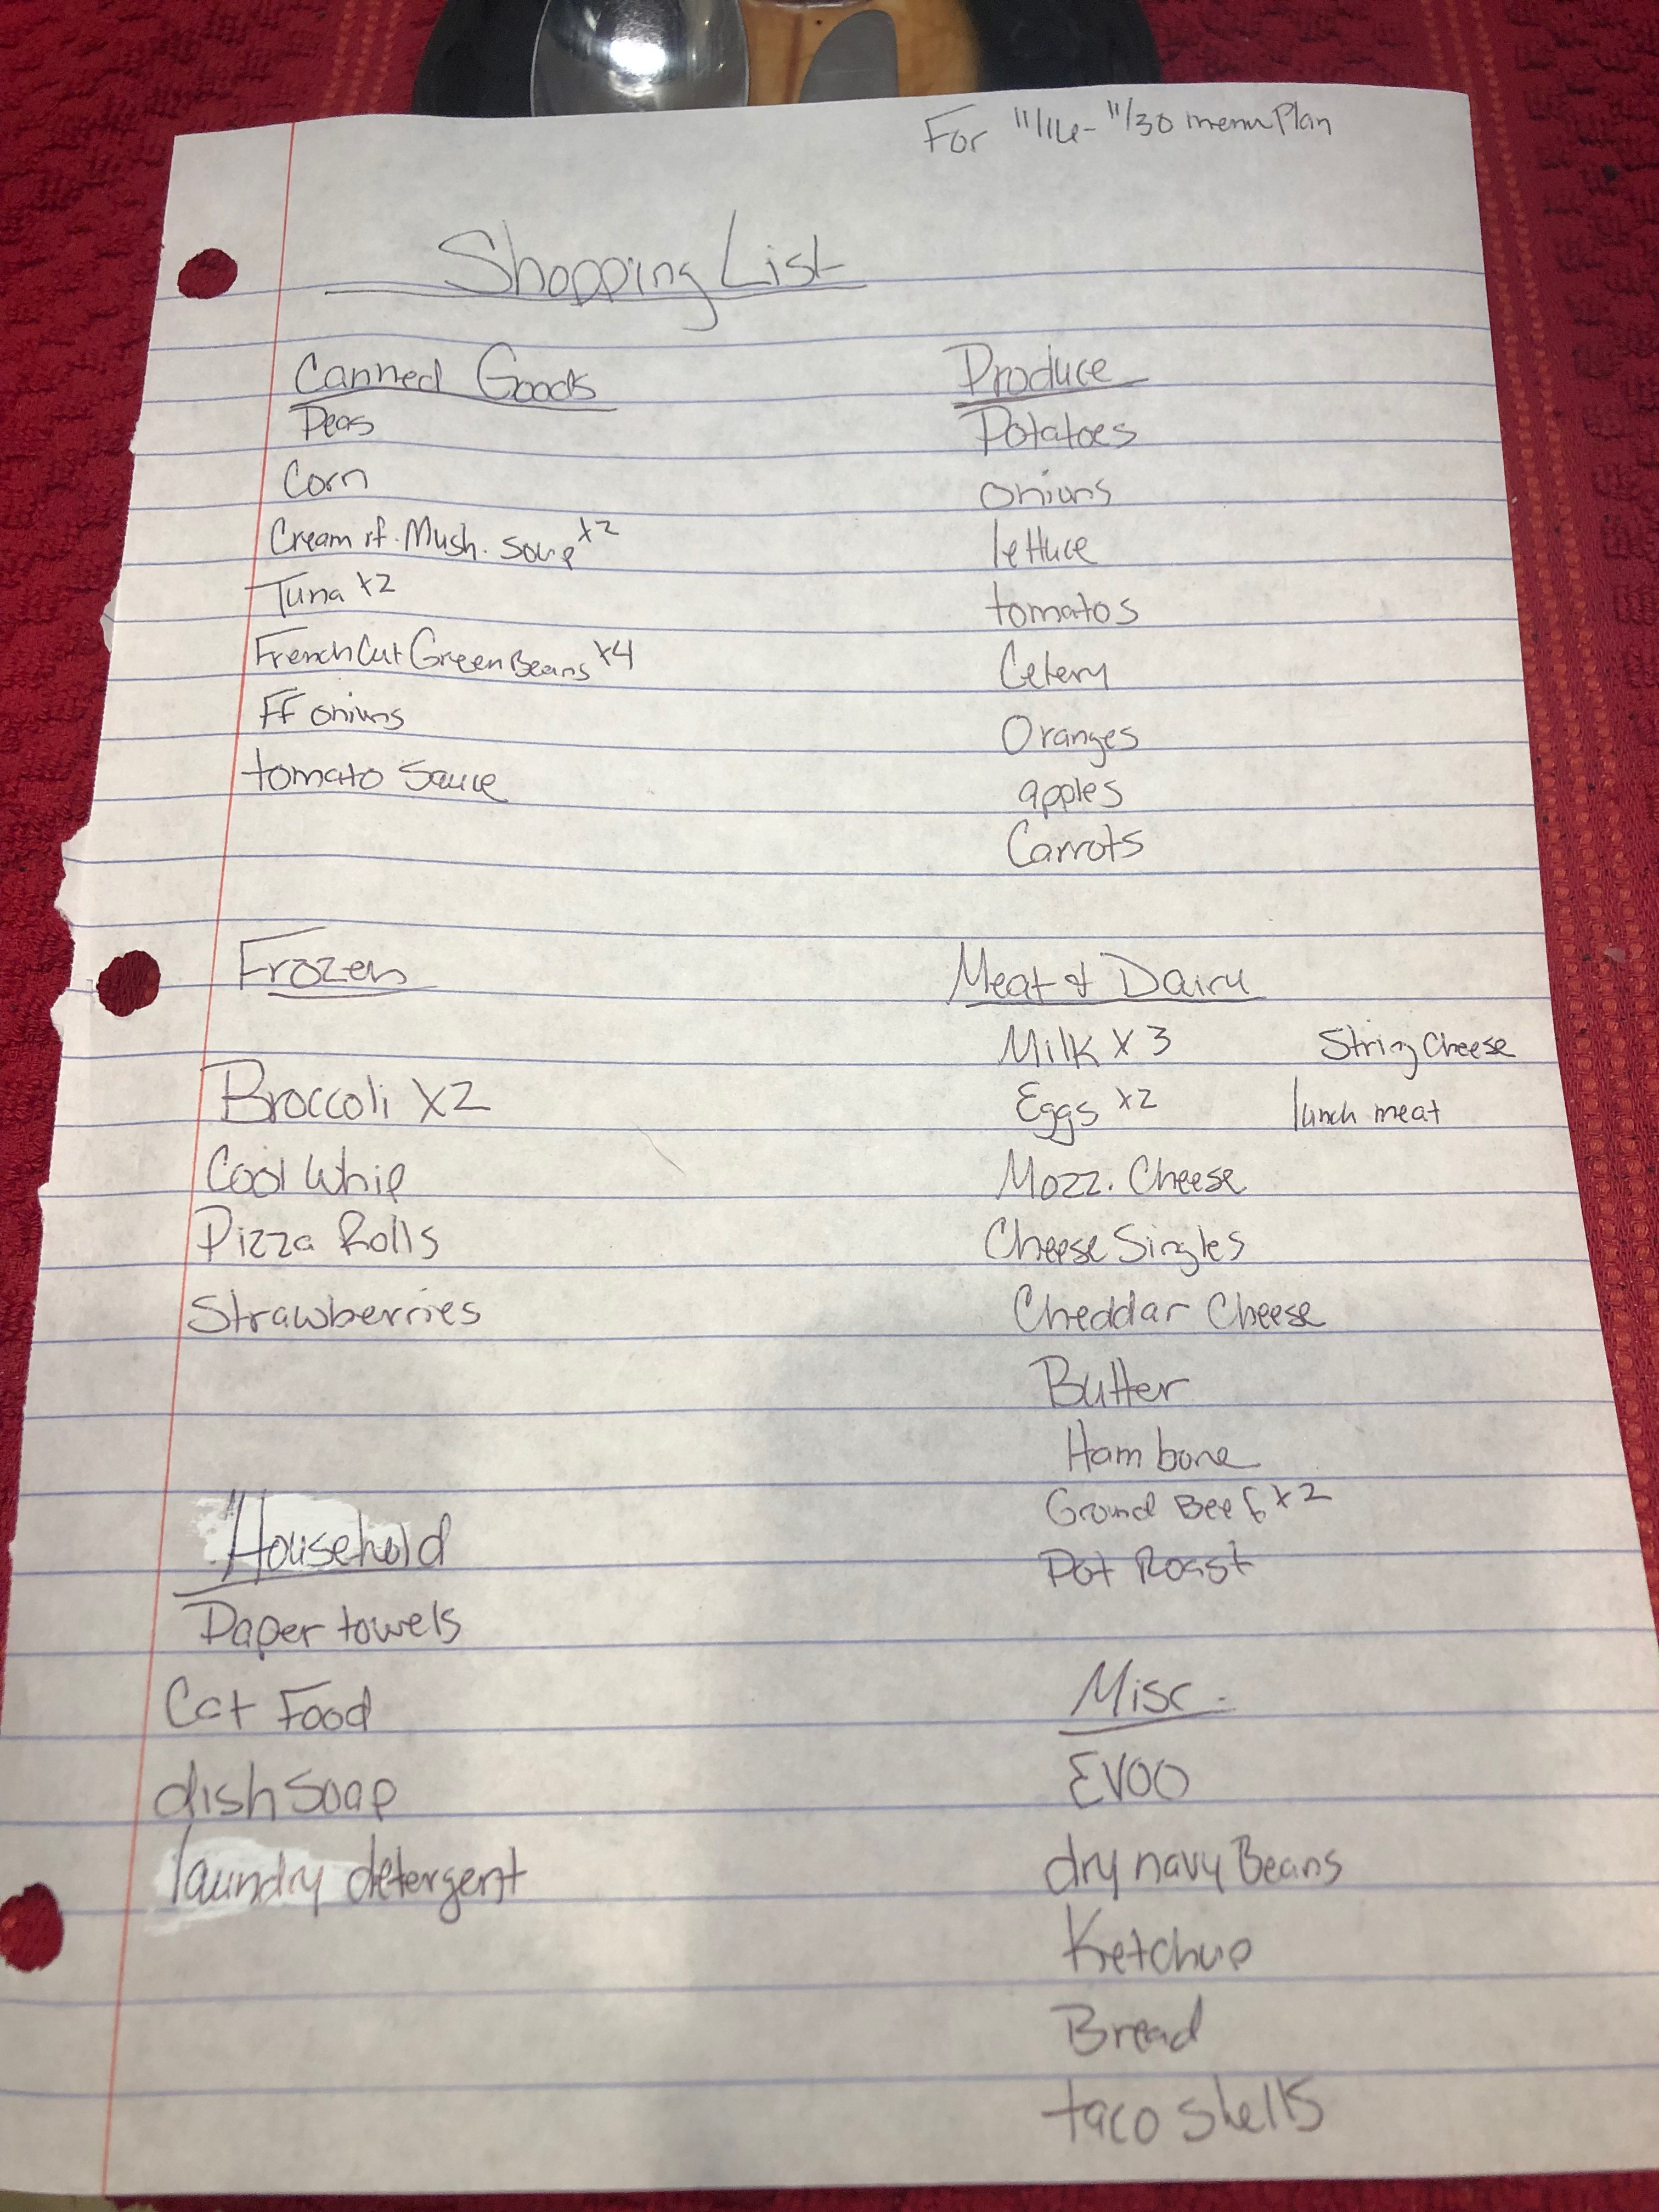 For 11/16-11/30 menu Plan
Shopping List
Canned Goods
Peas
Corn
Cream of Mush. Soup x2
Tuna x2
French Cut Green Beans x4
FF onions
tomato Sauce
Produce
Potatoes
onions
lettuce
tomatos
Celery
Oranges
apples
Carrots
Frozen
Broccoli x2
Cool Whip
Pizza Rolls
Strawberries
Meat & Dairy
Milk x 3
String Cheese
Eggs x2
lunch meat
Mozz. Cheese
Cheese Singles
Cheddar Cheese
Butter
Ham bone
Ground Beef x2
Pot Roast
Household
Paper towels
Cat Food
dish Soap
laundry detergent
Misc.
EVOO
dry navy Beans
Ketchup
Bread
taco shells